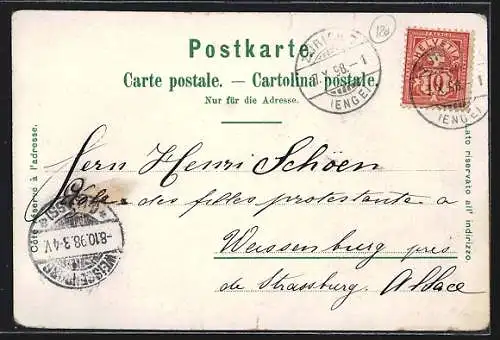 Postkarte.
Carte postale. — Cartolina postale.
Nur für die Adresse.
ZÜRICH
7.X.98.-1
(ENGE)
HELVETIA
10
(ENGE)
Côté réservé à l'adresse.
Lato riservato all' indirizzo.
Herrn Henri Schöen
École des filles protestante à
Weissenburg près
de Strassburg. Alsace
WEISSENBURG
-8.10.98.3-4V.